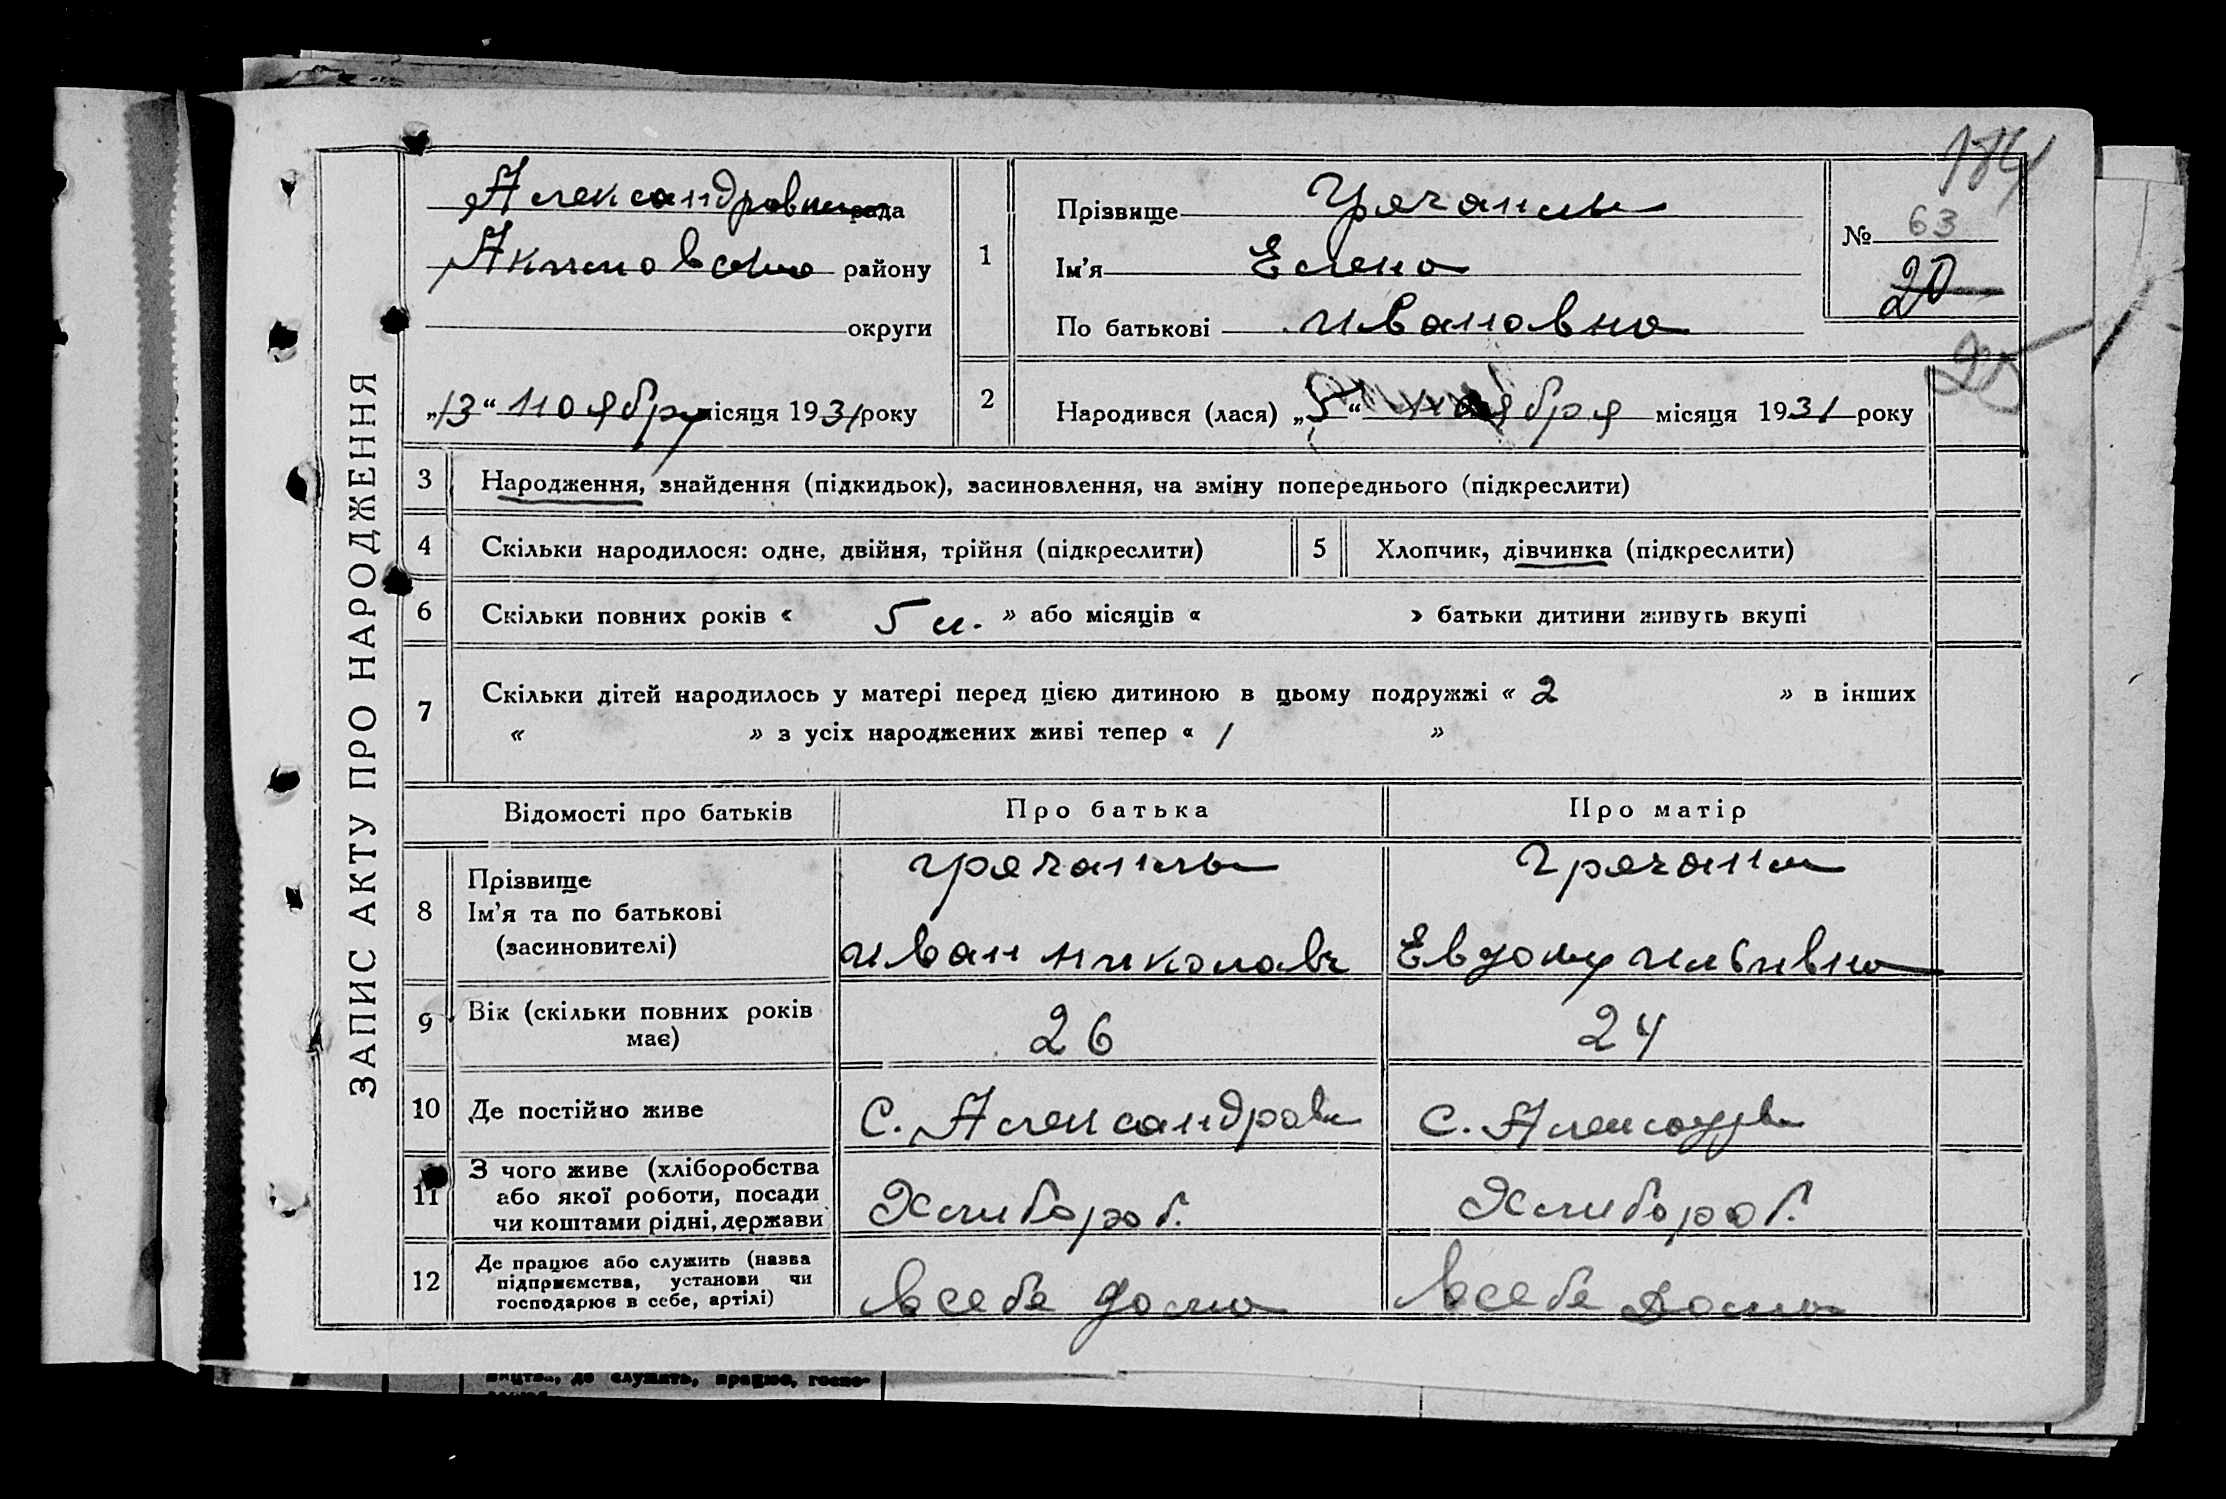 ЗАПИС АКТУ ПРО НАРОДЖЕННЯ
184
Александровка рада
Акимовского району
округи
"13" ноября місяця 1931 року
1
Прізвище Гречаны
Ім'я Елена
По батькові Ивановна
№ 63
20
2
Народився (лася) "5" ноября місяця 1931 року
3 Народження, знайдення (підкидьок), засиновлення, на зміну попереднього (підкреслити)
4 Скільки народилося: одне, двійня, трійня (підкреслити) 5 Хлопчик, дівчинка (підкреслити)
6 Скільки повних років « 5 л. » або місяців « » батьки дитини живуть вкупі
7 Скільки дітей народилось у матері перед цією дитиною в цьому подружжі « 2 » в інших
« » з усіх народжених живі тепер « 1 »
Відомості про батьків Про батька Про матір
8 Прізвище
Ім'я та по батькові
(засиновителі)
Иван Николавч
9 Вік (скільки повних років
має)
26 24
10 Де постійно живе с. Александровк с.
11 З чого живе (хліборобства
або якої роботи, посади
чи коштами рідні, держави
Хлибороб. Хлибороб.
12 Де працює або служить (назва
підприємства, установи чи
господарює в себе, артілі)
в себе дома в себе дома